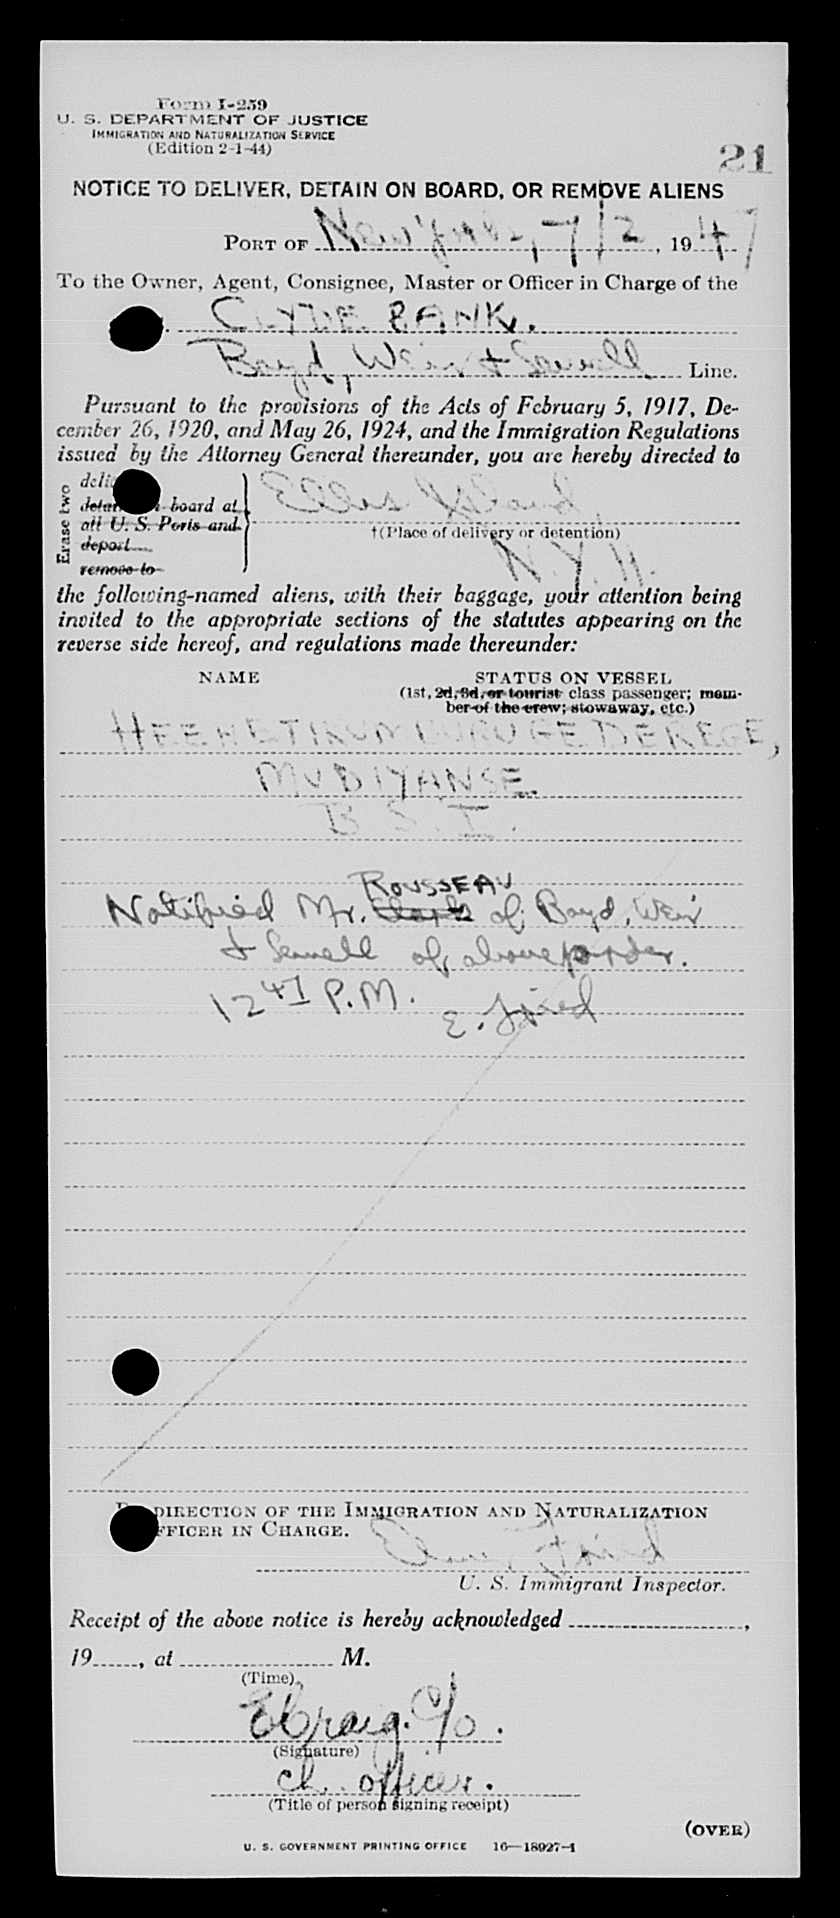 Form I-259
U. S. DEPARTMENT OF JUSTICE
IMMIGRATION AND NATURALIZATION SERVICE
(Edition 2-1-44)
21
NOTICE TO DELIVER, DETAIN ON BOARD, OR REMOVE ALIENS
PORT OF New York, 7/2, 1947
To the Owner, Agent, Consignee, Master or Officer in Charge of the
CLYDE BANK.
Boyd, Weir & Sewell Line.
Pursuant to the provisions of the Acts of February 5, 1917, De-
cember 26, 1920, and May 26, 1924, and the Immigration Regulations
issued by the Attorney General thereunder, you are hereby directed to
Erase two
board at
all U. S. Ports and
deport
remove to
Ellis Island,
†(Place of delivery or detention)
N.Y.H.
the following-named aliens, with their baggage, your attention being
invited to the appropriate sections of the statutes appearing on the
reverse side hereof, and regulations made thereunder:
NAME STATUS ON VESSEL
(1st, 2d, 3d, or tourist class passenger; mem-
ber of the crew; stowaway, etc.)
MUDIYANSE.
B. S. I.
ROUSSEAU
Notified Mr. Clark of Boyd, Weir
& Sewell of above order.
12 47 P.M. E. Fried
DIRECTION OF THE IMMIGRATION AND NATURALIZATION
OFFICER IN CHARGE.
Fried
U. S. Immigrant Inspector.
Receipt of the above notice is hereby acknowledged ,
19 , at M.
(Time)
E Craig. C/o.
(Signature)
ch. officer.
(Title of person signing receipt)
(OVER)
U. S. GOVERNMENT PRINTING OFFICE 16—18927-1